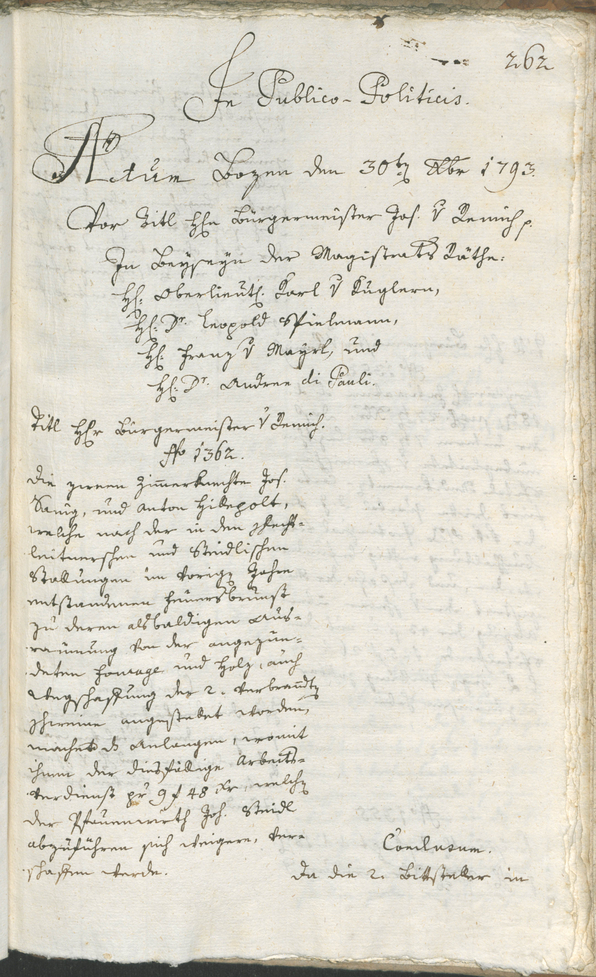 262
In Publico-Politicis.
Actum Bozen den 30ten Xbr 1793.
Vor Titl Hhn Bürgermeister Jos. v Remich p.
In Beyseyn der Magistrats Räthe:
Hh: Oberlieut: Karl v Kuglern,
Hh: Dr. Leopold Spielmann,
Hh: Franz v Mayrl, und
Hh: Dr. Andree di Pauli.
Titl Hhr Bürgermeister v Remich.
No 1362.
Die zween Zimerknechte Jos.
und Anton
welche nach der in den
leitnerschen und Steidlischen
Stallungen im vorigen Jahre
entstandenen Feuersbrunst
zu deren alsbaldigen Aus-
raumung von der angezün-
deten Fourage und Holz, auch
Wegschaffung der 2. verbrendten
Schweine angestelt worden,
machen das Anlangen, womit
ihnen der diesfällige Arbeits-
verdienst pr 9 f 48 Xr, welchen
der Pfauenwirth Joh. Steidl
abzuführen sich weigere, ver-
schaffen werde.
Conclusum.
Da die 2. Bittsteller in